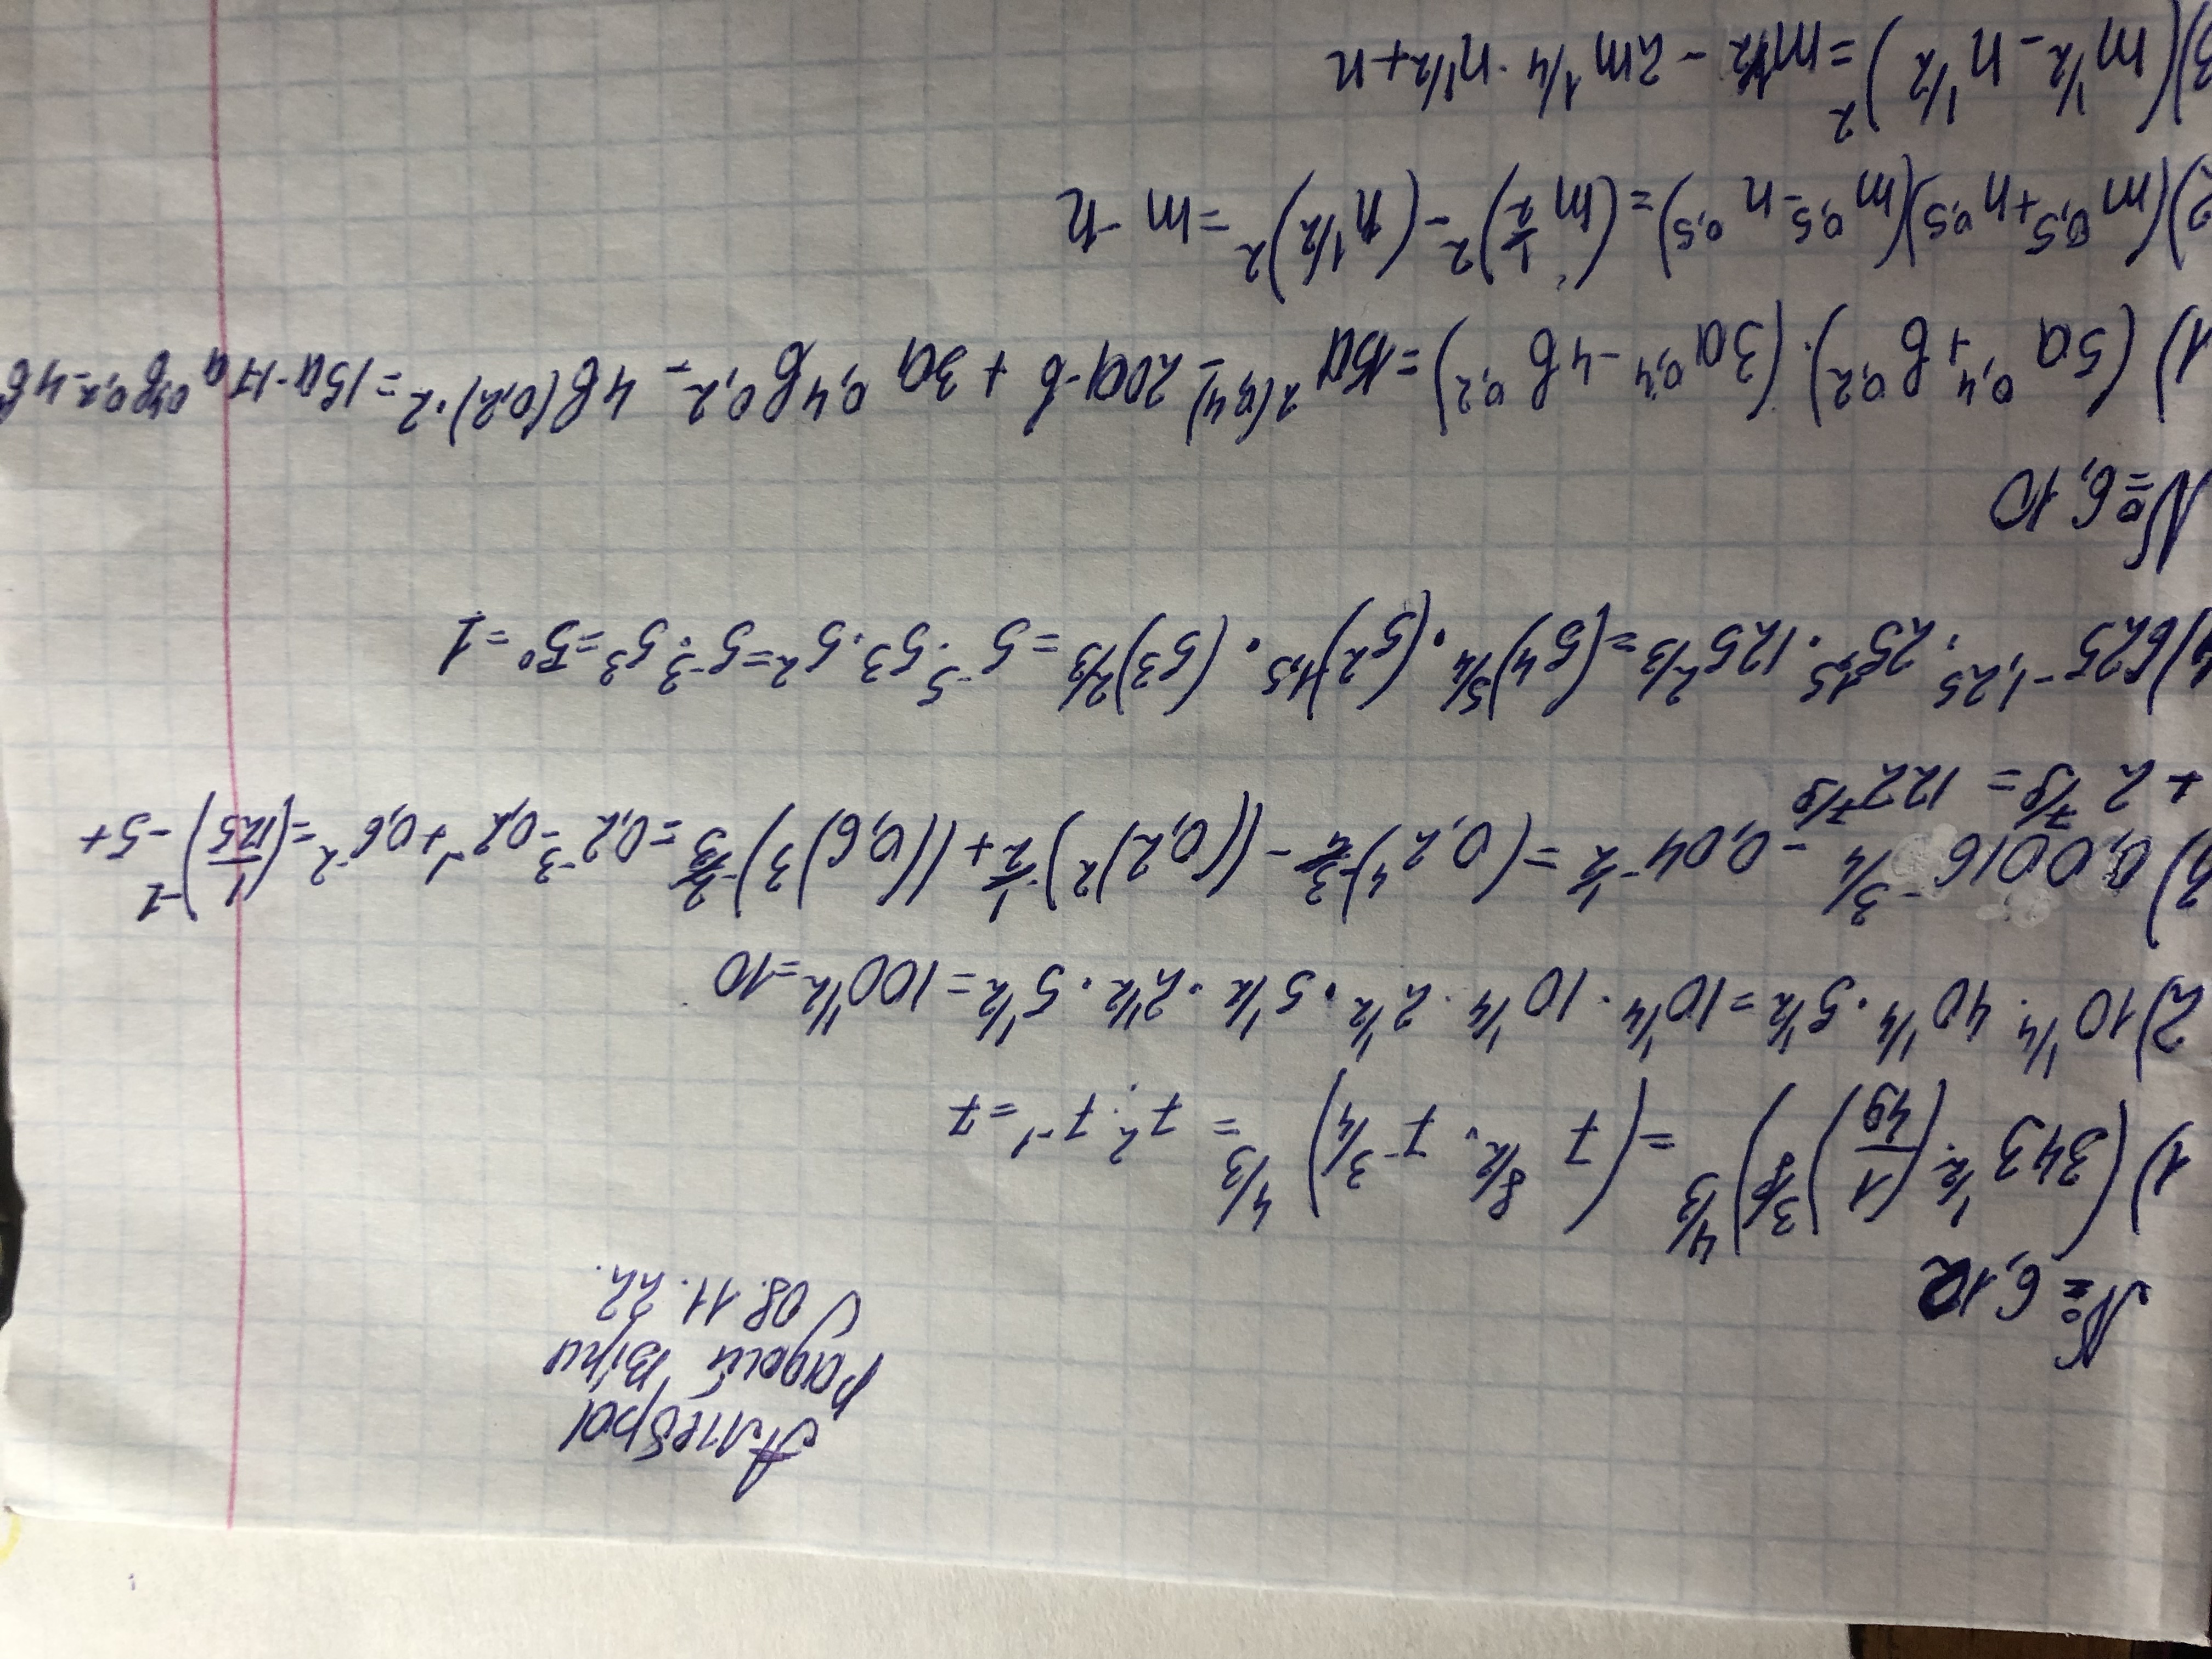 Алгебра
Радлей Віри
08.11.22.
№ 6,12
1) (343^1/2 · (1/49)^3/8)^4/3 = (7^8/2 · 7^-3/4)^4/3 = 7^2 · 7^-1 = 7
2) 10^1/4 · 40^1/4 · 5^1/2 = 10^1/4 · 10^1/4 · 2^1/2 · 5^1/2 · 2^1/2 · 5^1/2 = 100^1/2 = 10
3) 0,0016^-3/4 - 0,04^-1/2 = (0,2^4)^-3/4 - ((0,2)^2)^-1/2 + ((0,6)^3)^-2/3 = 0,2^-3 - 0,2^-1 + 0,6^-2 = (1/125)^-1 - 5 +
+ 2 7/9 = 122 7/9
4) 625^-1,25 · 25^1,5 · 125^2/3 = (5^4)^5/4 · (5^2)^1,5 · (5^3)^2/3 = 5^-5 · 5^3 · 5^2 = 5^-3 · 5^3 = 5^0 = 1
№ 6,10
1) (5a^0,4 + b^0,2) · (3a^0,4 - 4b^0,2) = 15a^2(0,4) - 20a·b + 3a^0,4 b^0,2 - 4b^(0,2)·2 = 15a - 17a^0,4 b^0,2 - 4b
2) (m^0,5 + n^0,5)(m^0,5 - n^0,5) = (m^1/2)^2 - (n^1/2)^2 = m - n
3) (m^1/2 - n^1/2)^2 = m^1/2 - 2m^1/4 · n^1/2 + n